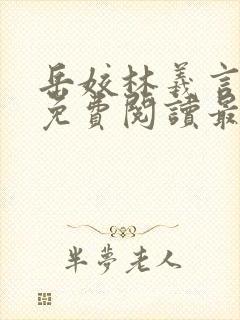 岳姣林義言
免費閱讀最
半夢老人